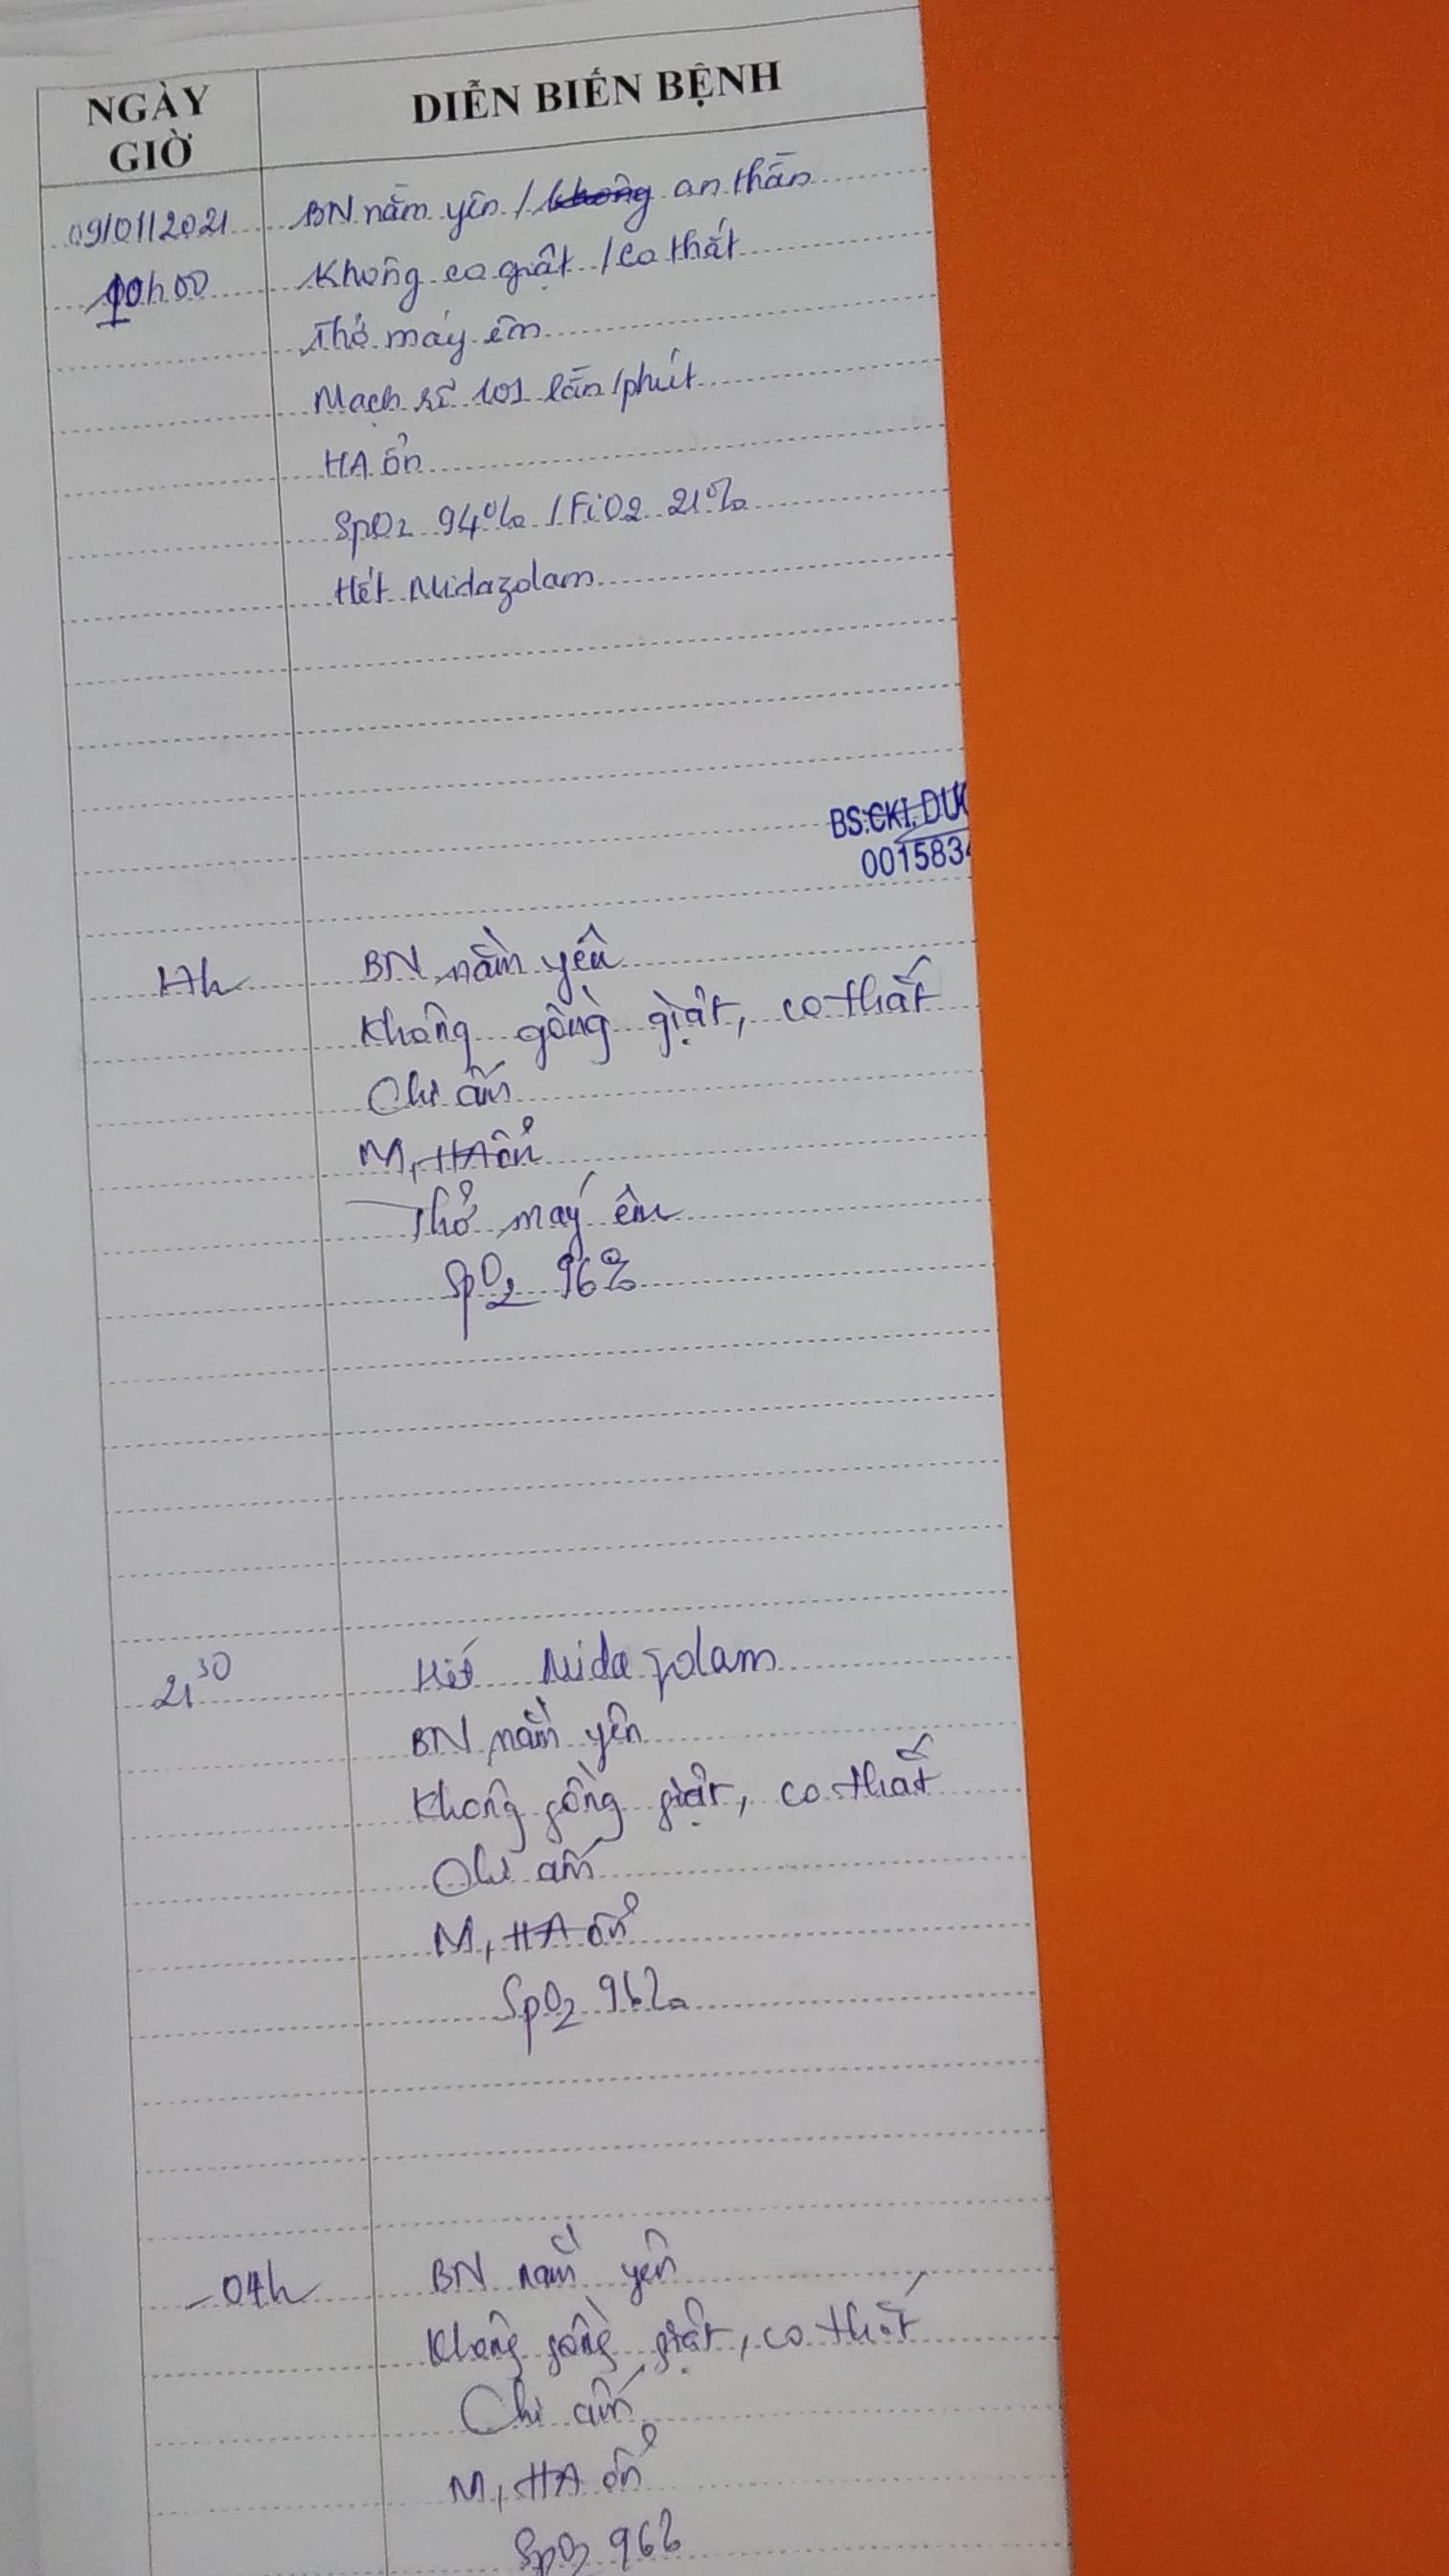 NGÀY GIỜ
DIỄN BIẾN BỆNH
09/01/2021 BN nằm yên / an thần
10h00 Không co giật / co thắt
Thở máy êm
Mạch rõ 101 lần/phút
HA ổn
SpO2 94% / FiO2 21%
Hết Midazolam
BS.CKI. DƯƠ
0015834
17h BN nằm yên
Không gồng giật, co thắt
Chi ấm
M, HA ổn
Thở máy êm
SpO2 96%
21 30 Hết Midazolam
BN nằm yên
Không gồng giật, co thắt
Chi ấm
M, HA ổn
SpO2 96%
BN nằm yên
Không gồng giật, co thắt
Chi ấm
M, HA ổn
SpO2 96%